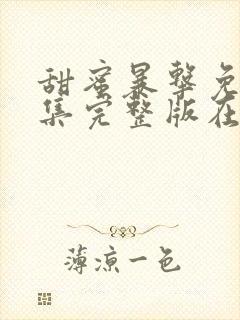 甜蜜暴击免
集完整版在
薄凉一色